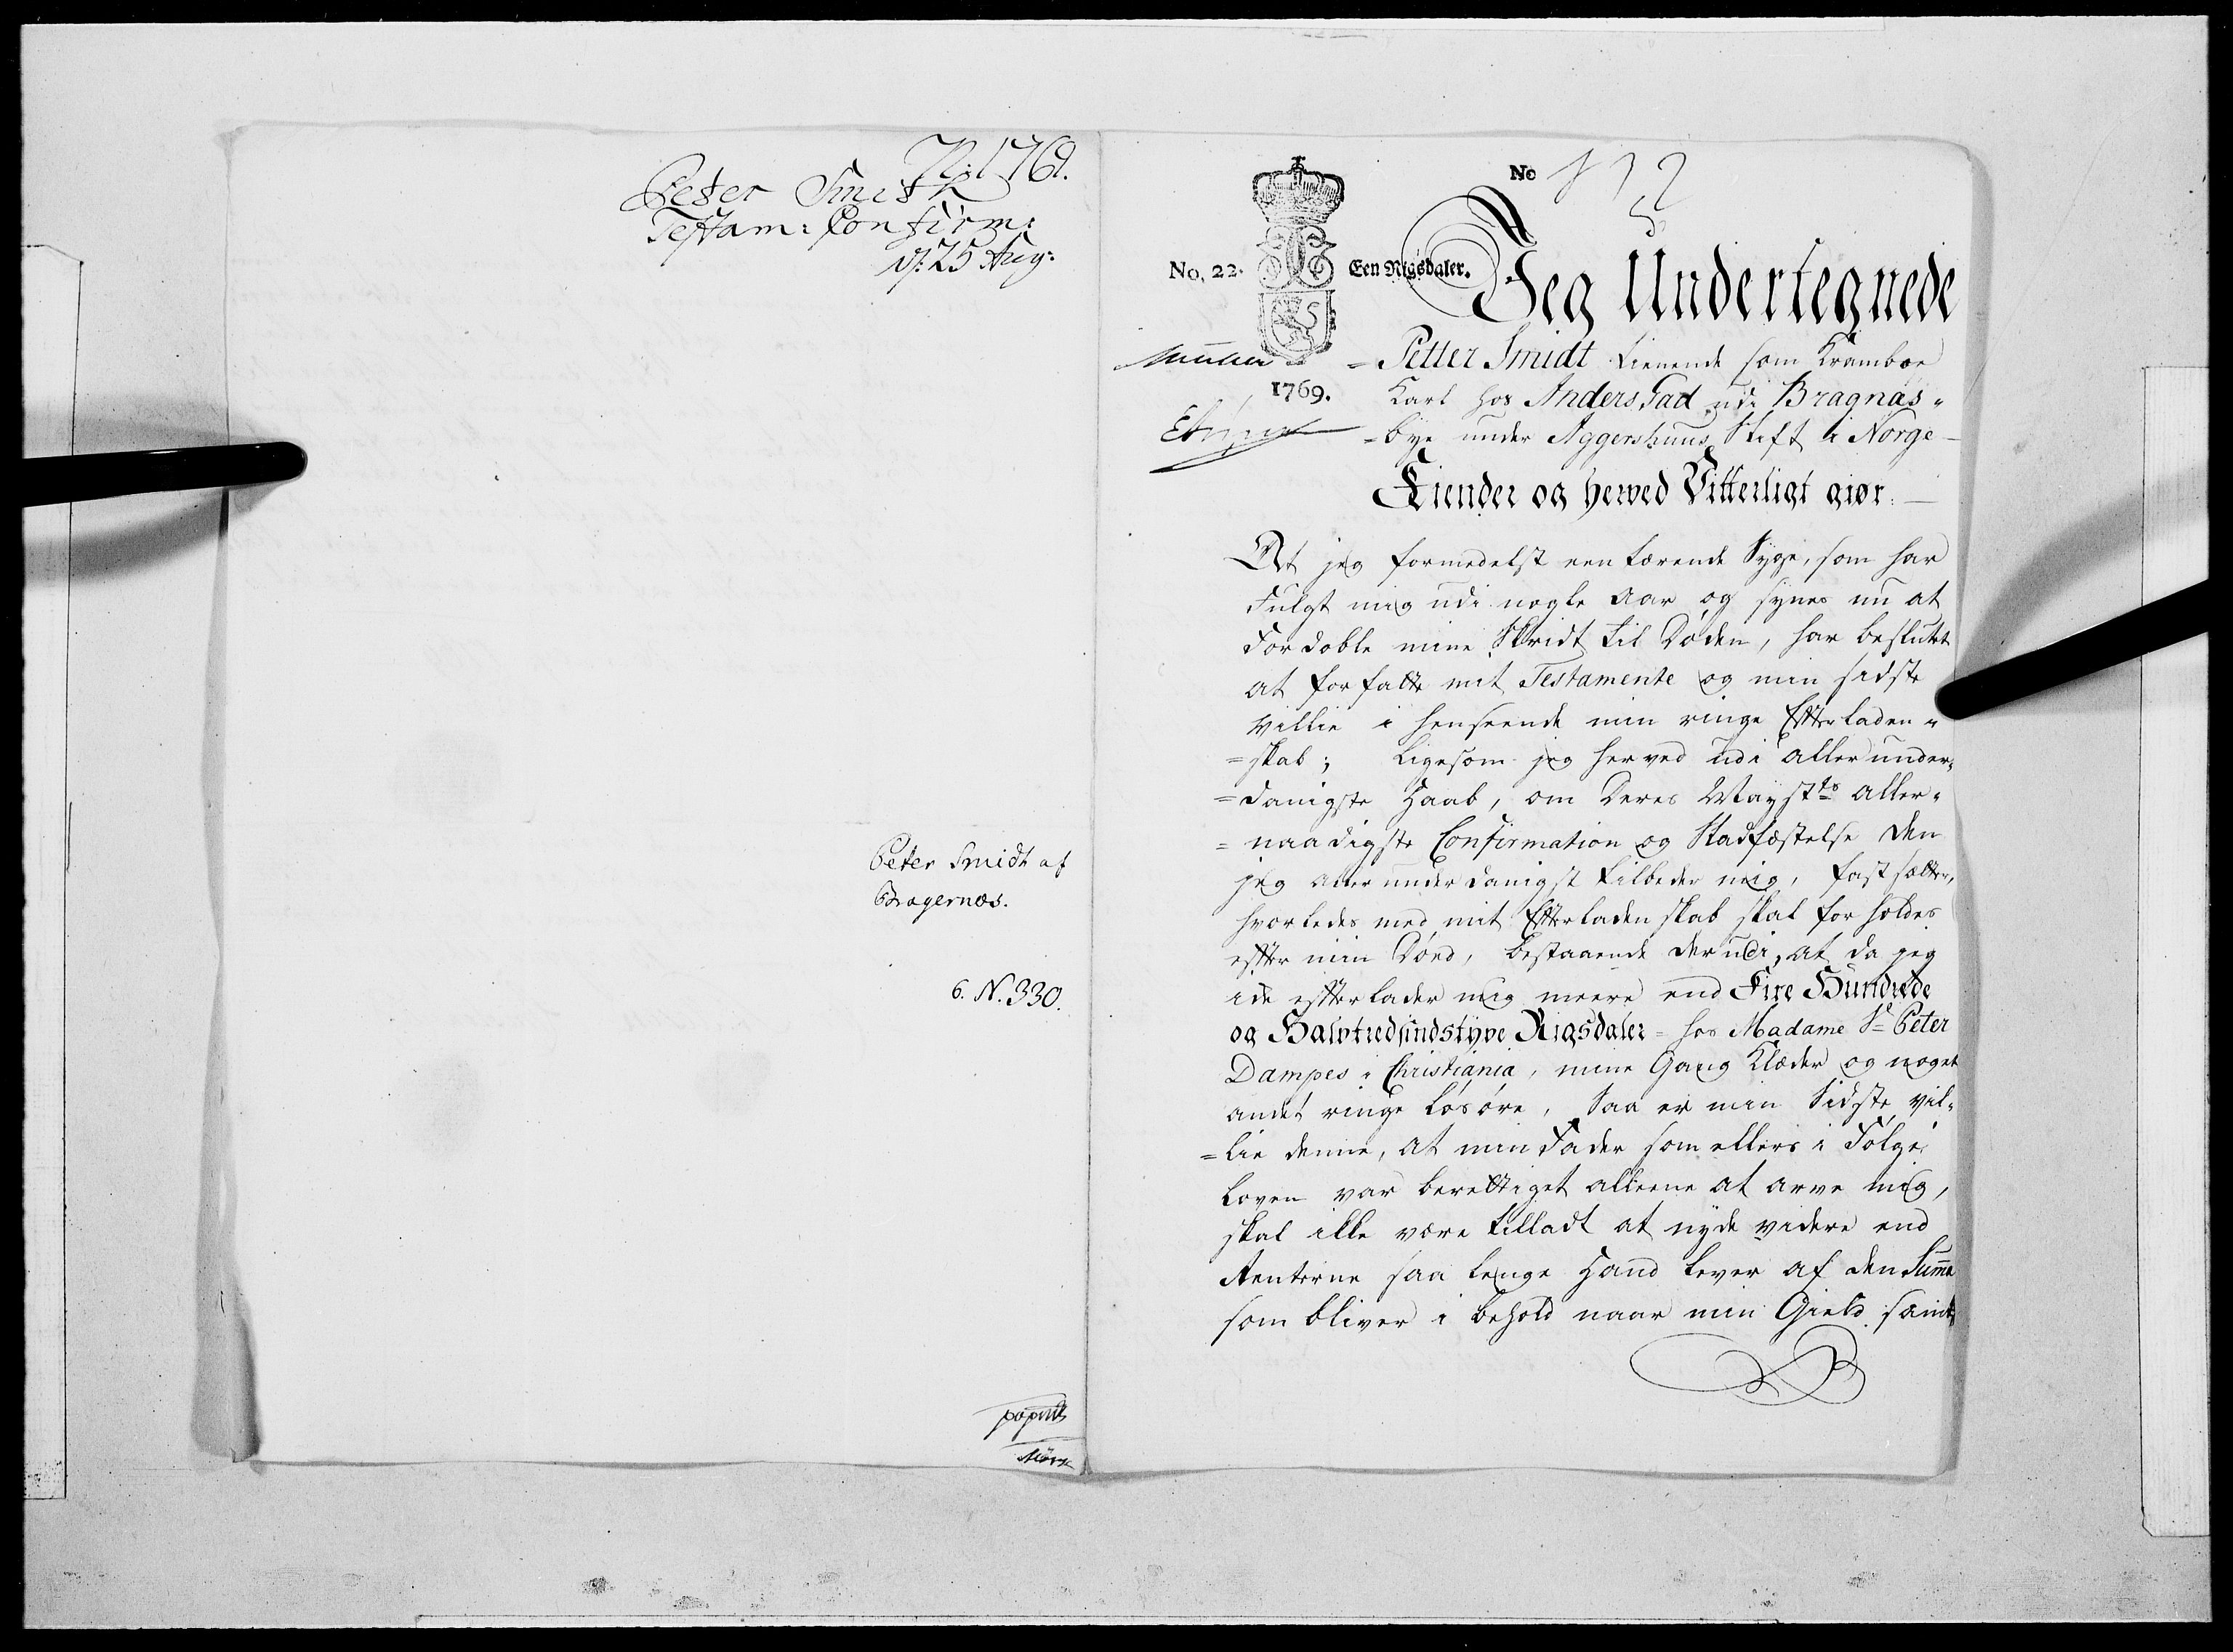 N: 1769.
Peter Smith
Testam: Confirm:
d: 25 Aug:
Peter Smidt af
Bragernæs.
6. N. 330.
No
No. 22. Een Rigsdaler.
1769.
Jeg Undertegnede
= Petter Smidt tienende som Kramboe
Karl hos Anders Gad udi Bragnæs=
=bye under Aggershuus Stift i Norge
Kiender og herved Vitterligt giør:
At jeg formedelst een tærende Syge, som har
fulgt mig udi nogle aar og synes nu at
fordoble mine Skridt til Døden, har besluttet
at forfatte mit Testamente og min sidste
villie i henseende min ringe Efterladen=
=skab; ligesom jeg herved udi allerunder=
=danigste Haab, om Deres Mayst:ts aller=
=naadigste Confirmation og Stadfæstelse den
jeg allerunderdanigst tilbeder mig, fastsætter,
hvorledes med mit Efterladenskab skal forholdes
efter min Død, bestaaende derudi, at da jeg
icke efterlader mig meere end Fire Hundrede
og Halvtredsindstyve Rigsdaler = hos Madame Sr Peter
Dampes i Christiania, mine Gang Klæder og noget
andet ringe løsøre, Saa er min Sidste vil=
=lie denne, at min Fader som ellers i Følge
loven var berettiget alleene at arve mig,
skal ikke være tilladt at nyde videre end
Renterne saa lenge Hand lever af den Summa
som bliver i behold naar min Gield samt